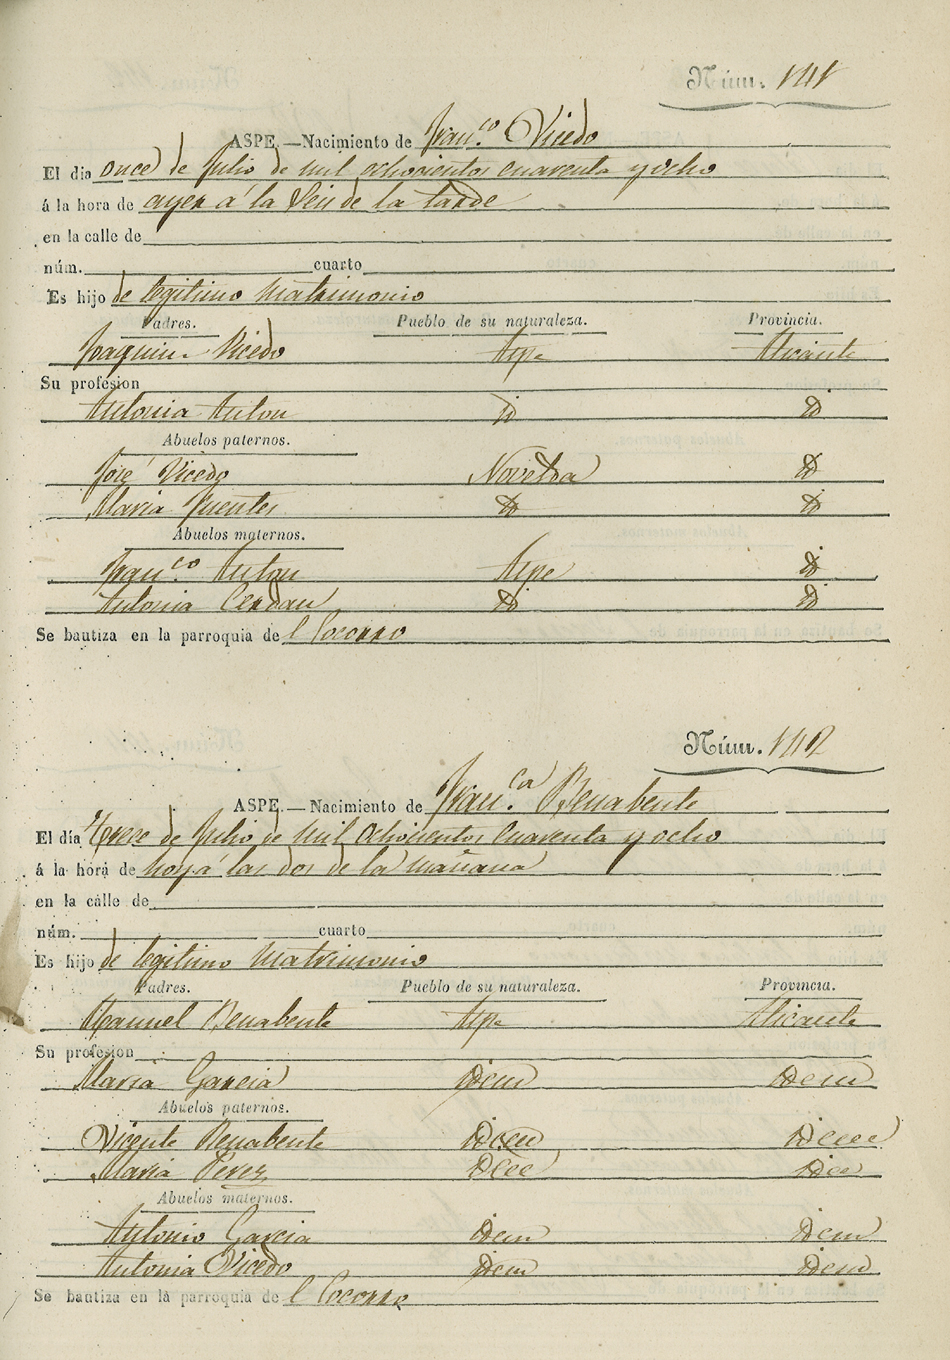 Núm. 141
ASPE.—Nacimiento de Fran.co Vicedo
El dia once de Julio de mil ochocientos cuarenta y ocho
á la hora de ayer á la Seis de la tarde
en la calle de
núm. cuarto
Es hijo de legitimo Matrimonio
Padres. Pueblo de su naturaleza. Provincia.
Joaquin Vicedo Aspe Alicante
Su profesion
Antonia Anton id id
Abuelos paternos.
José Vicedo Novelda id
Maria Fuentes id id
Abuelos maternos.
Fran.co Anton Aspe id
Antonia Cerdan id id
Se bautiza en la parroquia del Socorro
Núm. 142
ASPE.—Nacimiento de Fran.ca Benabente
El día Trece de Julio de mil ochocientos cuarenta y ocho
á la hora de hoy á las dos de la mañana
en la calle de
núm. cuarto
Es hijo de legitimo Matrimonio
Padres. Pueblo de su naturaleza. Provincia.
Manuel Benabente Aspe Alicante
Su profesion
Maria Garcia Idem Idem
Abuelos paternos.
Vicente Benabente Idem Idem
Maria Perez Idem Idem
Abuelos maternos.
Antonio Garcia Idem Idem
Antonia Vicedo Idem Idem
Se bautiza en la parroquia del Socorro